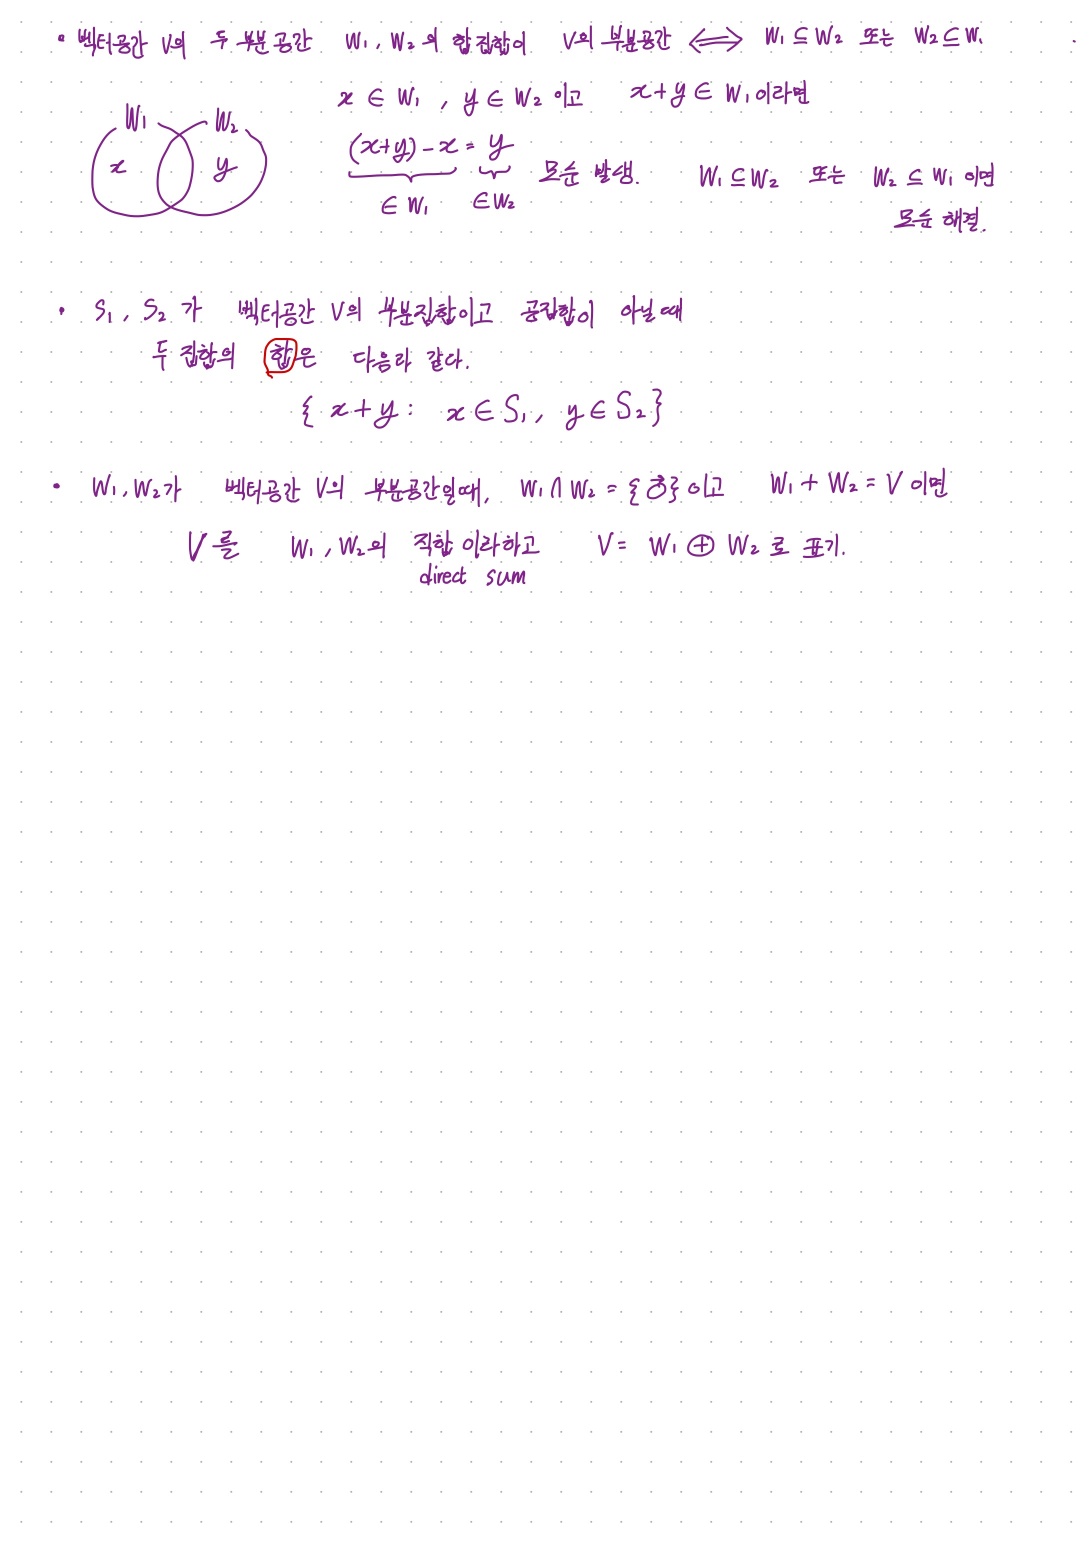 • 벡터공간 V의 두 부분공간 W₁, W₂의 합집합이 V의 부분공간 ⟺ W₁ ⊆ W₂ 또는 W₂ ⊆ W₁
x ∈ W₁ , y ∈ W₂ 이고 x+y ∈ W₁ 이라면
W₁ W₂
x y
(x+y) - x = y
∈ W₁ ∈ W₂
모순 발생. W₁ ⊆ W₂ 또는 W₂ ⊆ W₁ 이면
모순 해결.
• S₁, S₂ 가 벡터공간 V의 부분집합이고 공집합이 아닐 때
두 집합의 합은 다음과 같다.
{ x+y : x ∈ S₁, y ∈ S₂ }
• W₁, W₂가 벡터공간 V의 부분공간일때, W₁ ∩ W₂ = {0⃗} 이고 W₁ + W₂ = V 이면
V를 W₁, W₂의 직합 이라하고 V = W₁ ⊕ W₂ 로 표기.
direct sum